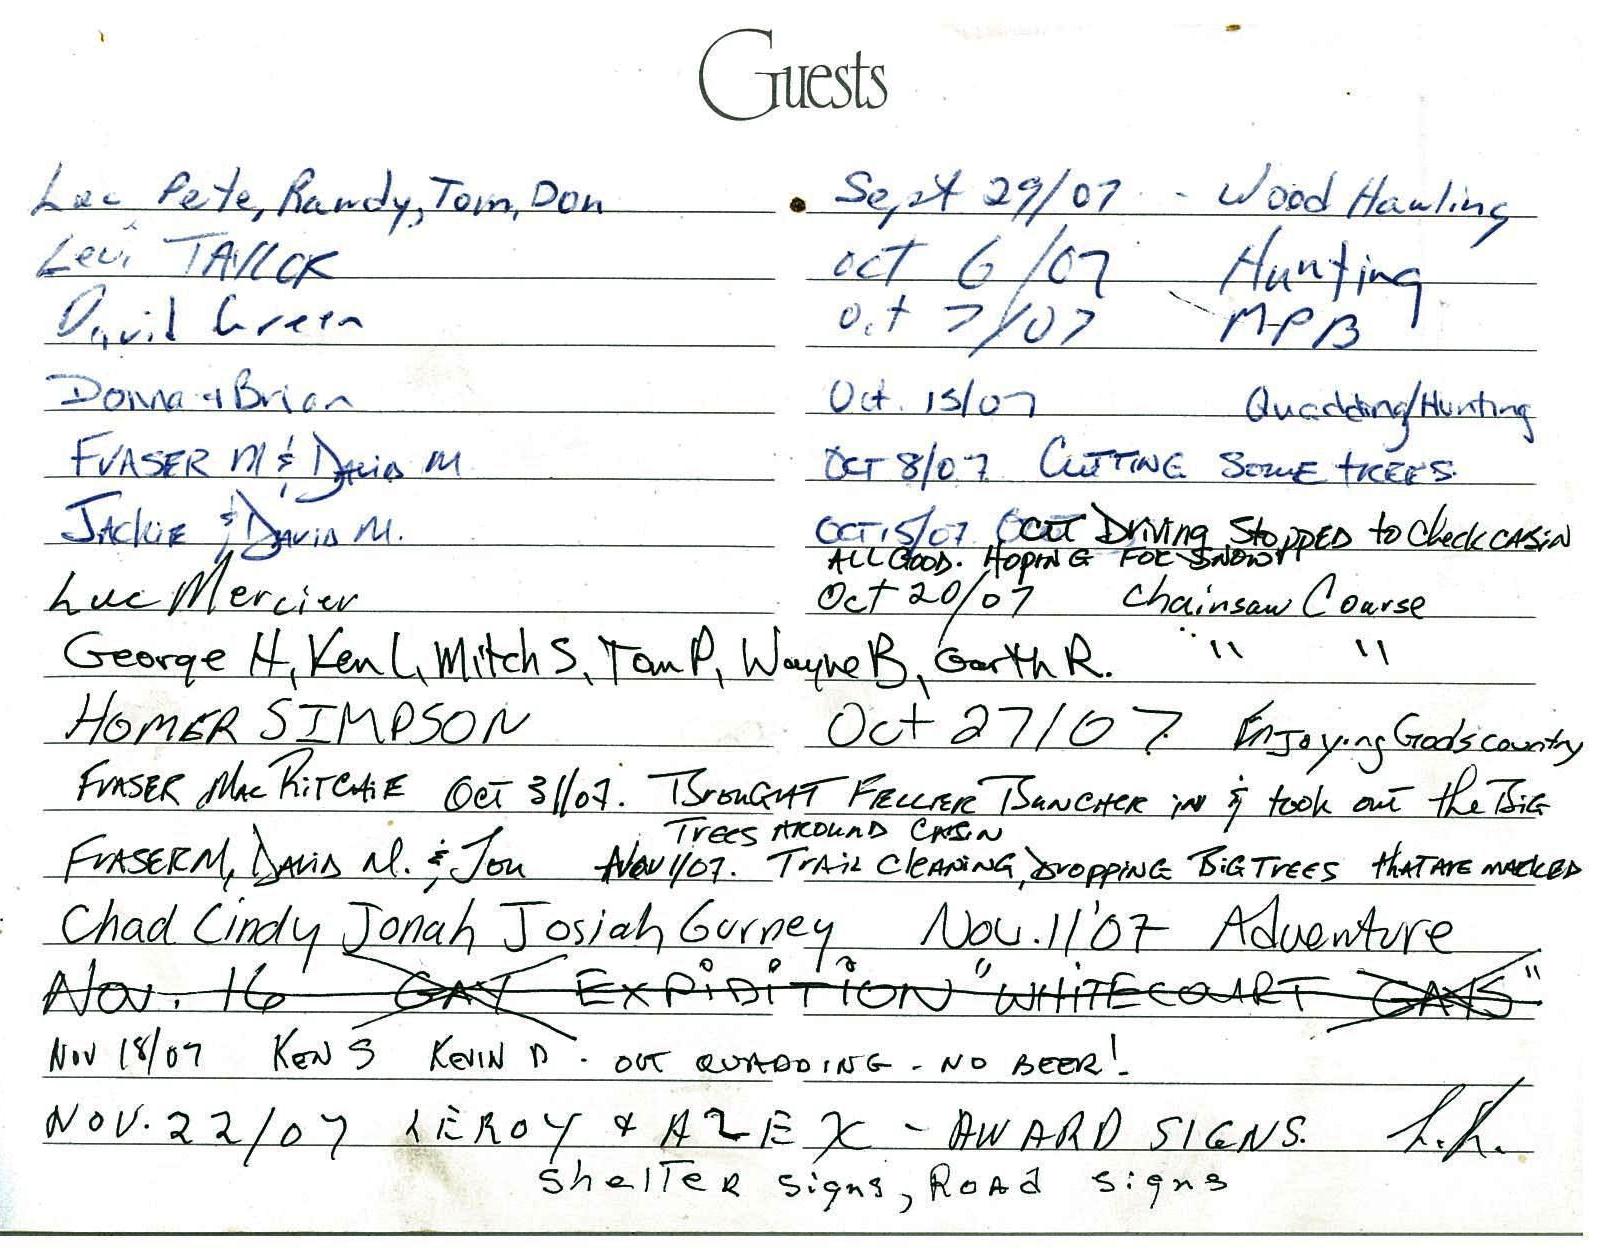 Guests
Luc Pete, Randy, Tom, Don Sept 29/07 - Wood Hauling
Levi TAYLOR oct 6/07 Hunting
David Green Oct 7/07 MPB
Donna & Brian Oct. 15/07 Quadding/Hunting
FRASER M & DAVID M OCT 8/07 CUTTING SOME TREES.
JACKIE & DAVID M. OCT 15/07 OUT Driving Stopped to Check CABIN
ALL GOOD. HOPING FOR SNOW!!
Luc Mercier Oct 20/07 Chainsaw Course
George H, Ken L, Mitch S, Tom P, Wayne B, Garth R. " "
HOMER SIMPSON Oct 27/07 Enjoying Gods country
FRASER MacRITCHIE Oct 31/07. BROUGHT FELLER BUNCHER in & took out the BIG
TREES AROUND CABIN
FRASER M, DAVID M. & Jon Nov 1/07. TRAIL CLEANING, DROPPING BIG TREES that are marked
Chad Cindy Jonah Josiah Gurney Nov. 11'07 Adventure
Nov. 16 GAY EXPIDITION "WHITECOURT GAYS"
NOV 18/07 KEN S KEVIN D. OUT QUADDING - NO BEER!
NOV. 22/07 LEROY & ALEX - AWARD SIGNS. L.K.
Shelter signs, ROAD signs